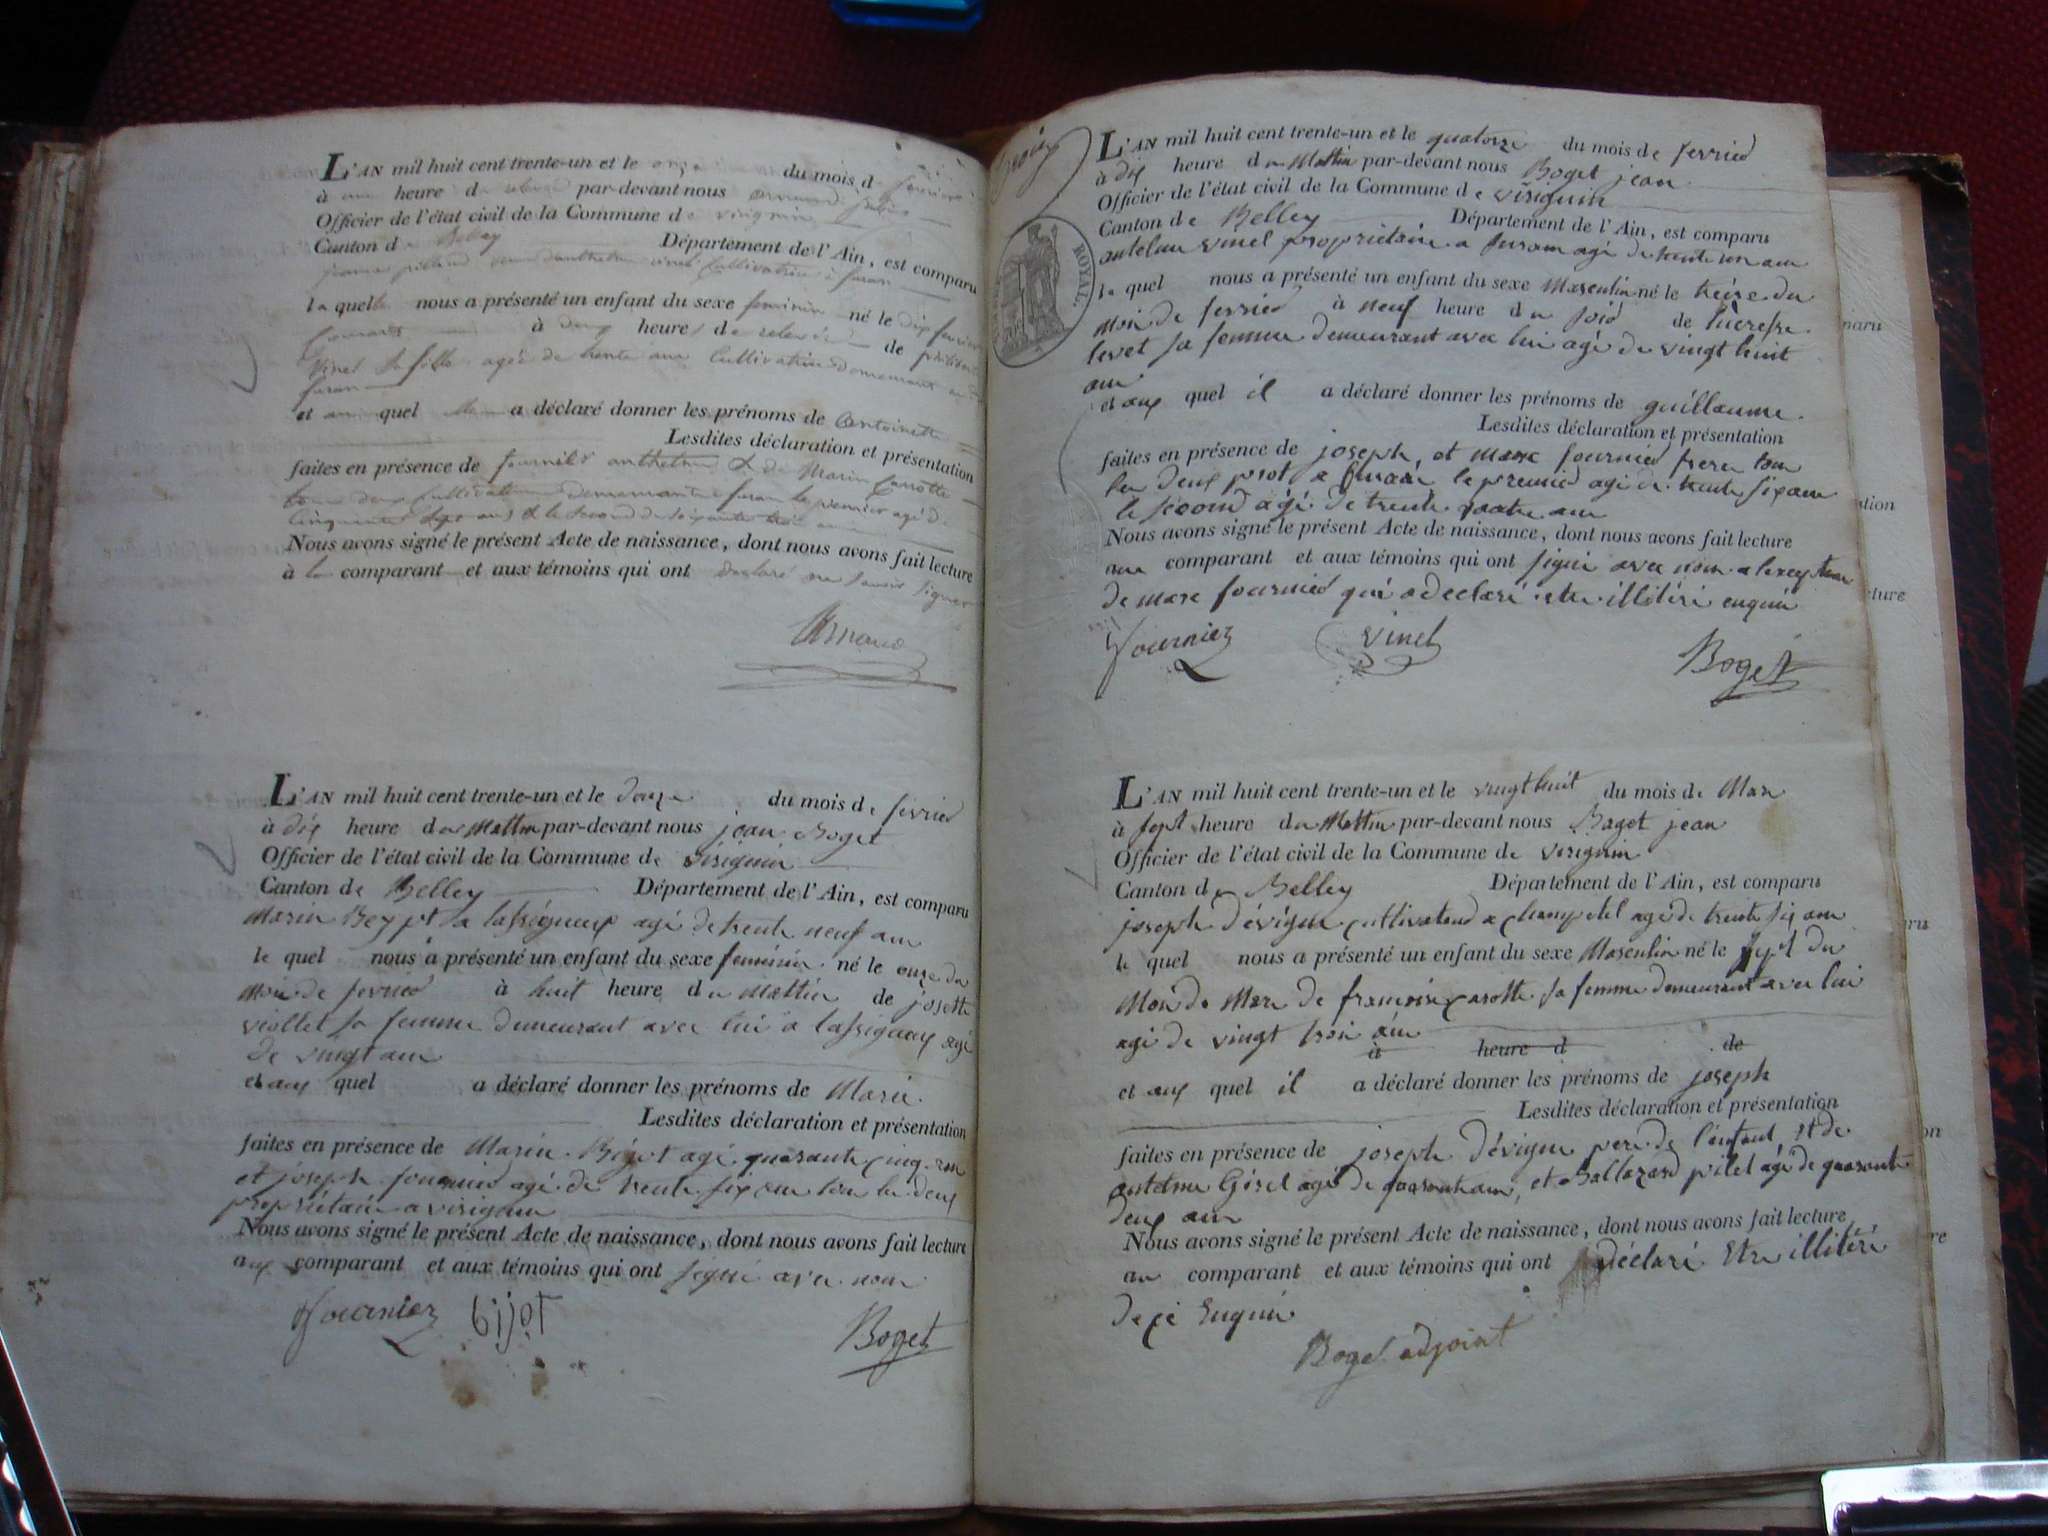 L'AN mil huit cent trente-un et le onze du mois de février
à une heure de relevé par-devant nous arnaud
Officier de l'état civil de la Commune de virignin
Canton de Belley Département de l'Ain, est comparu
cultivatrice à furan
laquelle nous a présenté un enfant du sexe feminin né le dix fevrier
courant à heures de relevé de
vinel sa fille agée de trente ans cultivatrice demeurant au dit
furan
et auquel a déclaré donner les prénoms de antoinette
Lesdites déclaration et présentation
faites en présence de fournier anthelme & de Marin Carrotte
tous deux cultivateurs demeurant à furan le premier agé de
cinquante ans & le second de soixante trois ans
Nous avons signé le présent Acte de naissance, dont nous avons fait lecture
à la comparante et aux témoins qui ont declaré ne savoir signer
Arnaud
L'AN mil huit cent trente-un et le douze du mois de fevried
à dix heure du Mattin par-devant nous jean Boget
Officier de l'état civil de la Commune de virignin
Canton de Belley Département de l'Ain, est comparu
Marin Bey pt a lassigneux agé de trente neuf an
le quel nous a présenté un enfant du sexe feminin né le onze du
mois de fevried à huit heure du Mattin de josette
viollet sa femme demeurant avec lui a lassigneux agé
de vingt an
et aux quel a déclaré donner les prénoms de Marie.
Lesdites déclaration et présentation
faites en présence de Marin Bijot agé quarante cinq an
et joseph fournied agé de trente six an tou les deux
proprietair a virignin
Nous avons signé le présent Acte de naissance, dont nous avons fait lecture
aux comparant et aux témoins qui ont signé avec nous
fournier bijot
Boget
trois
ROYAL
L'AN mil huit cent trente-un et le quatorze du mois de fevried
à dix heure du Mattin par-devant nous Boget jean
Officier de l'état civil de la Commune de virignin
Canton de Belley Département de l'Ain, est comparu
antelme vinel proprietaire a furan agé de trente un an
le quel nous a présenté un enfant du sexe Masculin né le treise du
Mois de fevried à neuf heure du soid de lucresse
levet sa femme demeurant avec lui agé de vingt huit
an
et aux quel il a déclaré donner les prénoms de guillaume.
Lesdites déclaration et présentation
faites en présence de joseph et marc fournied frere tou
les deux prot a furan le premied agé de trente six an
le second agé de trente quatre an
Nous avons signé le présent Acte de naissance, dont nous avons fait lecture
au comparant et aux témoins qui ont signé avec nous a lexeption
de marc fournied qui a declaré etre illitéré enquis
fournier vinel
Boget
L'AN mil huit cent trente-un et le vingt huit du mois de Mars
à sept heure du Mattin par-devant nous Boget jean
Officier de l'état civil de la Commune de virignin
Canton de Belley Département de l'Ain, est comparu
joseph dévigne cultivateud a champetel agé de trente six an
le quel nous a présenté un enfant du sexe Masculin né le sept du
Mois de Mars de francoise carotte sa femme demeurant avec lui
agé de vingt troi an
à heure d de
et aux quel il a déclaré donner les prénoms de joseph
Lesdites déclaration et présentation
faites en présence de joseph dévigne pere de l'enfant, et de
antelme Girel agé de quarante an, et Baltazard pilet agé de quarante
deux an
Nous avons signé le présent Acte de naissance, dont nous avons fait lecture
au comparant et aux témoins qui ont déclaré Etre illitéré
de ce Enquis
Boget adjoint
naru
ation
cture
ru
on
re